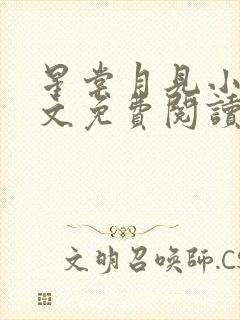 星棠自見小
文免費閱讀
文明召喚師.CS